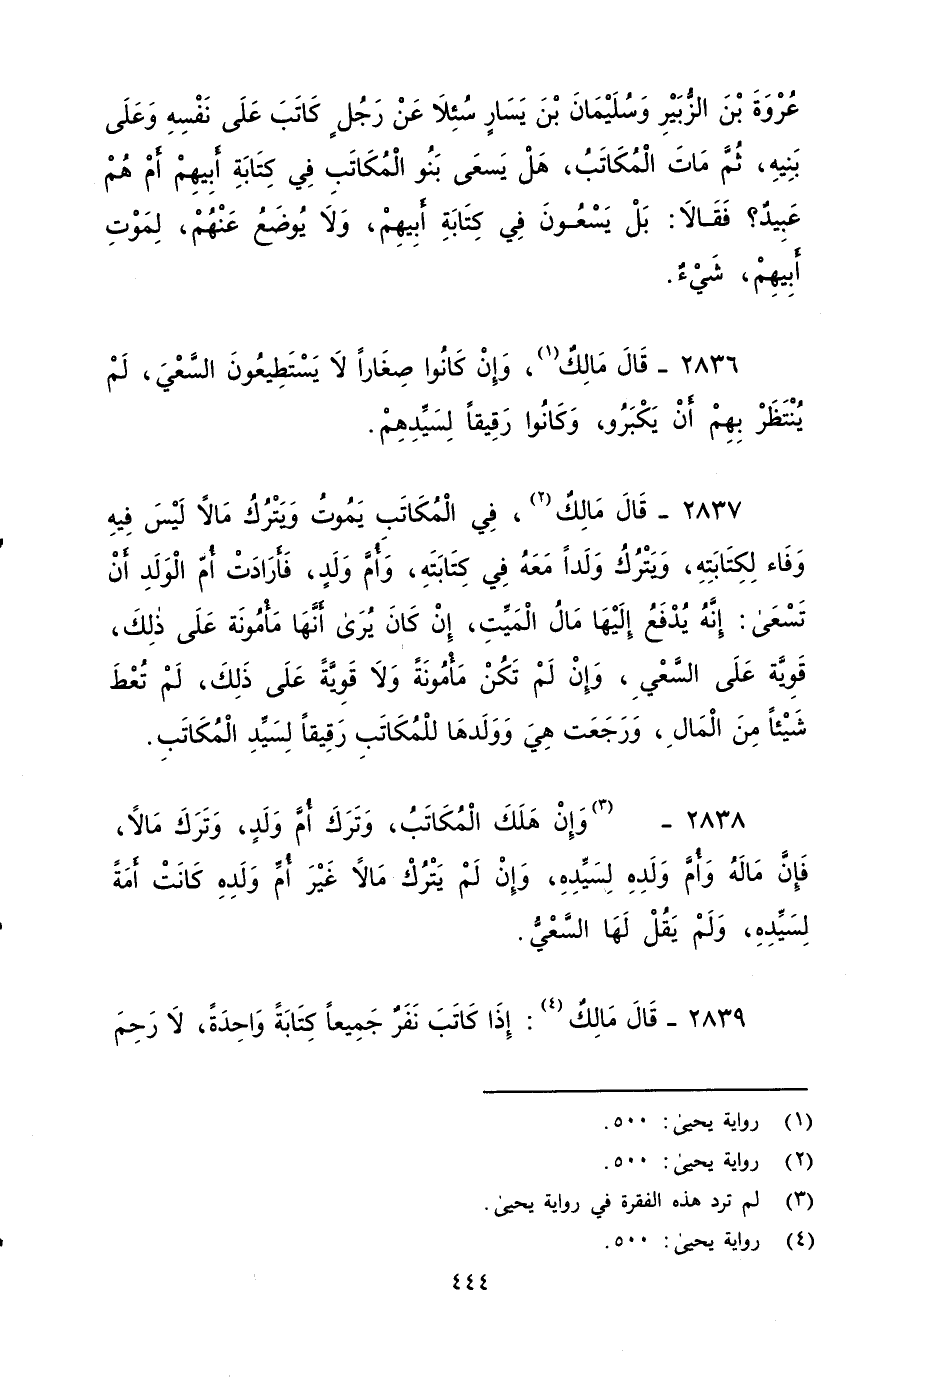 عُرْوَةَ بْنَ الزُّبَيْرِ وَسُلَيْمَانَ بْنَ يَسَارٍ سُئِلَا عَنْ رَجُلٍ كَاتَبَ عَلَى نَفْسِهِ وَعَلَى
بَنِيهِ، ثُمَّ مَاتَ الْمُكَاتَبُ، هَلْ يَسعَى بَنُو الْمُكَاتَبِ فِي كِتَابَةِ أَبِيهِمْ أَمْ هُمْ
عَبِيدٌ؟ فَقَـالَا: بَلْ يَسْعُـونَ فِي كِتَابَةِ أَبِيهِمْ، وَلَا يُوضَعُ عَنْهُمْ، لِمَوْتِ
أَبِيهِمْ، شَيْءٌ.
٢٨٣٦ - قَالَ مَالِكٌ(١)، وَإِنْ كَانُوا صِغَاراً لَا يَسْتَطِيعُونَ السَّعْيَ، لَمْ
يُنْتَظَرْ بِهِمْ أَنْ يَكْبَرُو، وَكَانُوا رَقِيقاً لِسَيِّدِهِمْ.
٢٨٣٧ - قَالَ مَالِكٌ(٢)، فِي الْمُكَاتَبِ يَمُوتُ وَيَتْرُكُ مَالًا لَيْسَ فِيهِ
وَفَاء لِكِتَابَتِهِ، وَيَتْرُكُ وَلَداً مَعَهُ فِي كِتَابَتِه، وَأُمَّ وَلَدٍ، فَأَرَادَتْ أُمّ الْوَلَدِ أَنْ
تَسْعَىٰ: إِنَّهُ يُدْفَعُ إِلَيْهَا مَالُ الْمَيِّتِ، إِنْ كَانَ يُرَىٰ أَنَّهَا مَأْمُونَة عَلَى ذٰلِكَ،
قَوِيَّة عَلَى السَّعْيِ، وَإِنْ لَمْ تَكُنْ مَأْمُونَةً وَلَا قَوِيَّةً عَلَى ذَلِكَ، لَمْ تُعْطَ
شَيْئاً مِنَ الْمَالِ، وَرَجَعَت هِيَ وَوَلَدهَا لِلْمُكَاتَبِ رَقِيقاً لِسَيِّدِ الْمُكَاتَبِ.
٢٨٣٨ - (٣)وَإِنْ هَلَكَ الْمُكَاتَبُ، وَتَرَكَ أُمَّ وَلَدٍ، وَتَرَكَ مَالًا،
فَإِنَّ مَالَهُ وَأُمَّ وَلَدِهِ لِسَيِّدِهِ، وَإِنْ لَمْ يَتْرُكْ مَالًا غَيْرَ أُمِّ وَلَدِهِ كَانَتْ أَمَةً
لِسَيِّدِهِ، وَلَمْ يَقُلْ لَهَا السَّعْيُّ.
٢٨٣٩ - قَالَ مَالِكٌ(٤): إِذَا كَاتَبَ نَفَرٌ جَمِيعاً كِتَابَةً وَاحِدَةً، لَا رَحِمَ
(١) رواية يحيىٰ: ٥٠٠.
(٢) رواية يحيىٰ: ٥٠٠.
(٣) لم ترد هذه الفقرة في رواية يحيىٰ.
(٤) رواية يحيىٰ: ٥٠٠.
٤٤٤